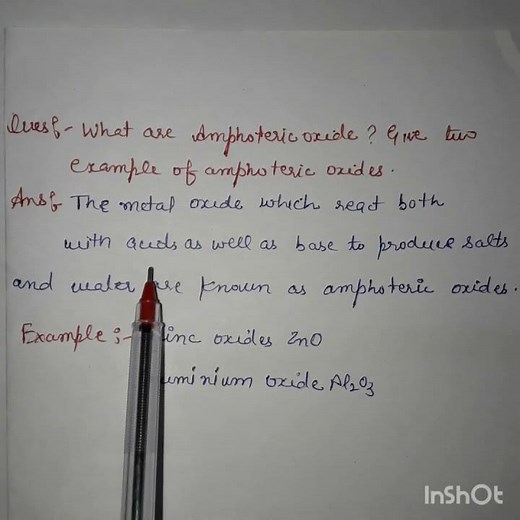 Ques:- What are Amphoteric oxide? Give two
example of amphoteric oxides.
Ans:- The metal oxide which react both
with acids as well as base to produce salts
and water are known as amphoteric oxides.
Example:- Zinc oxides ZnO
Aluminium oxide Al₂O₃
InShOt